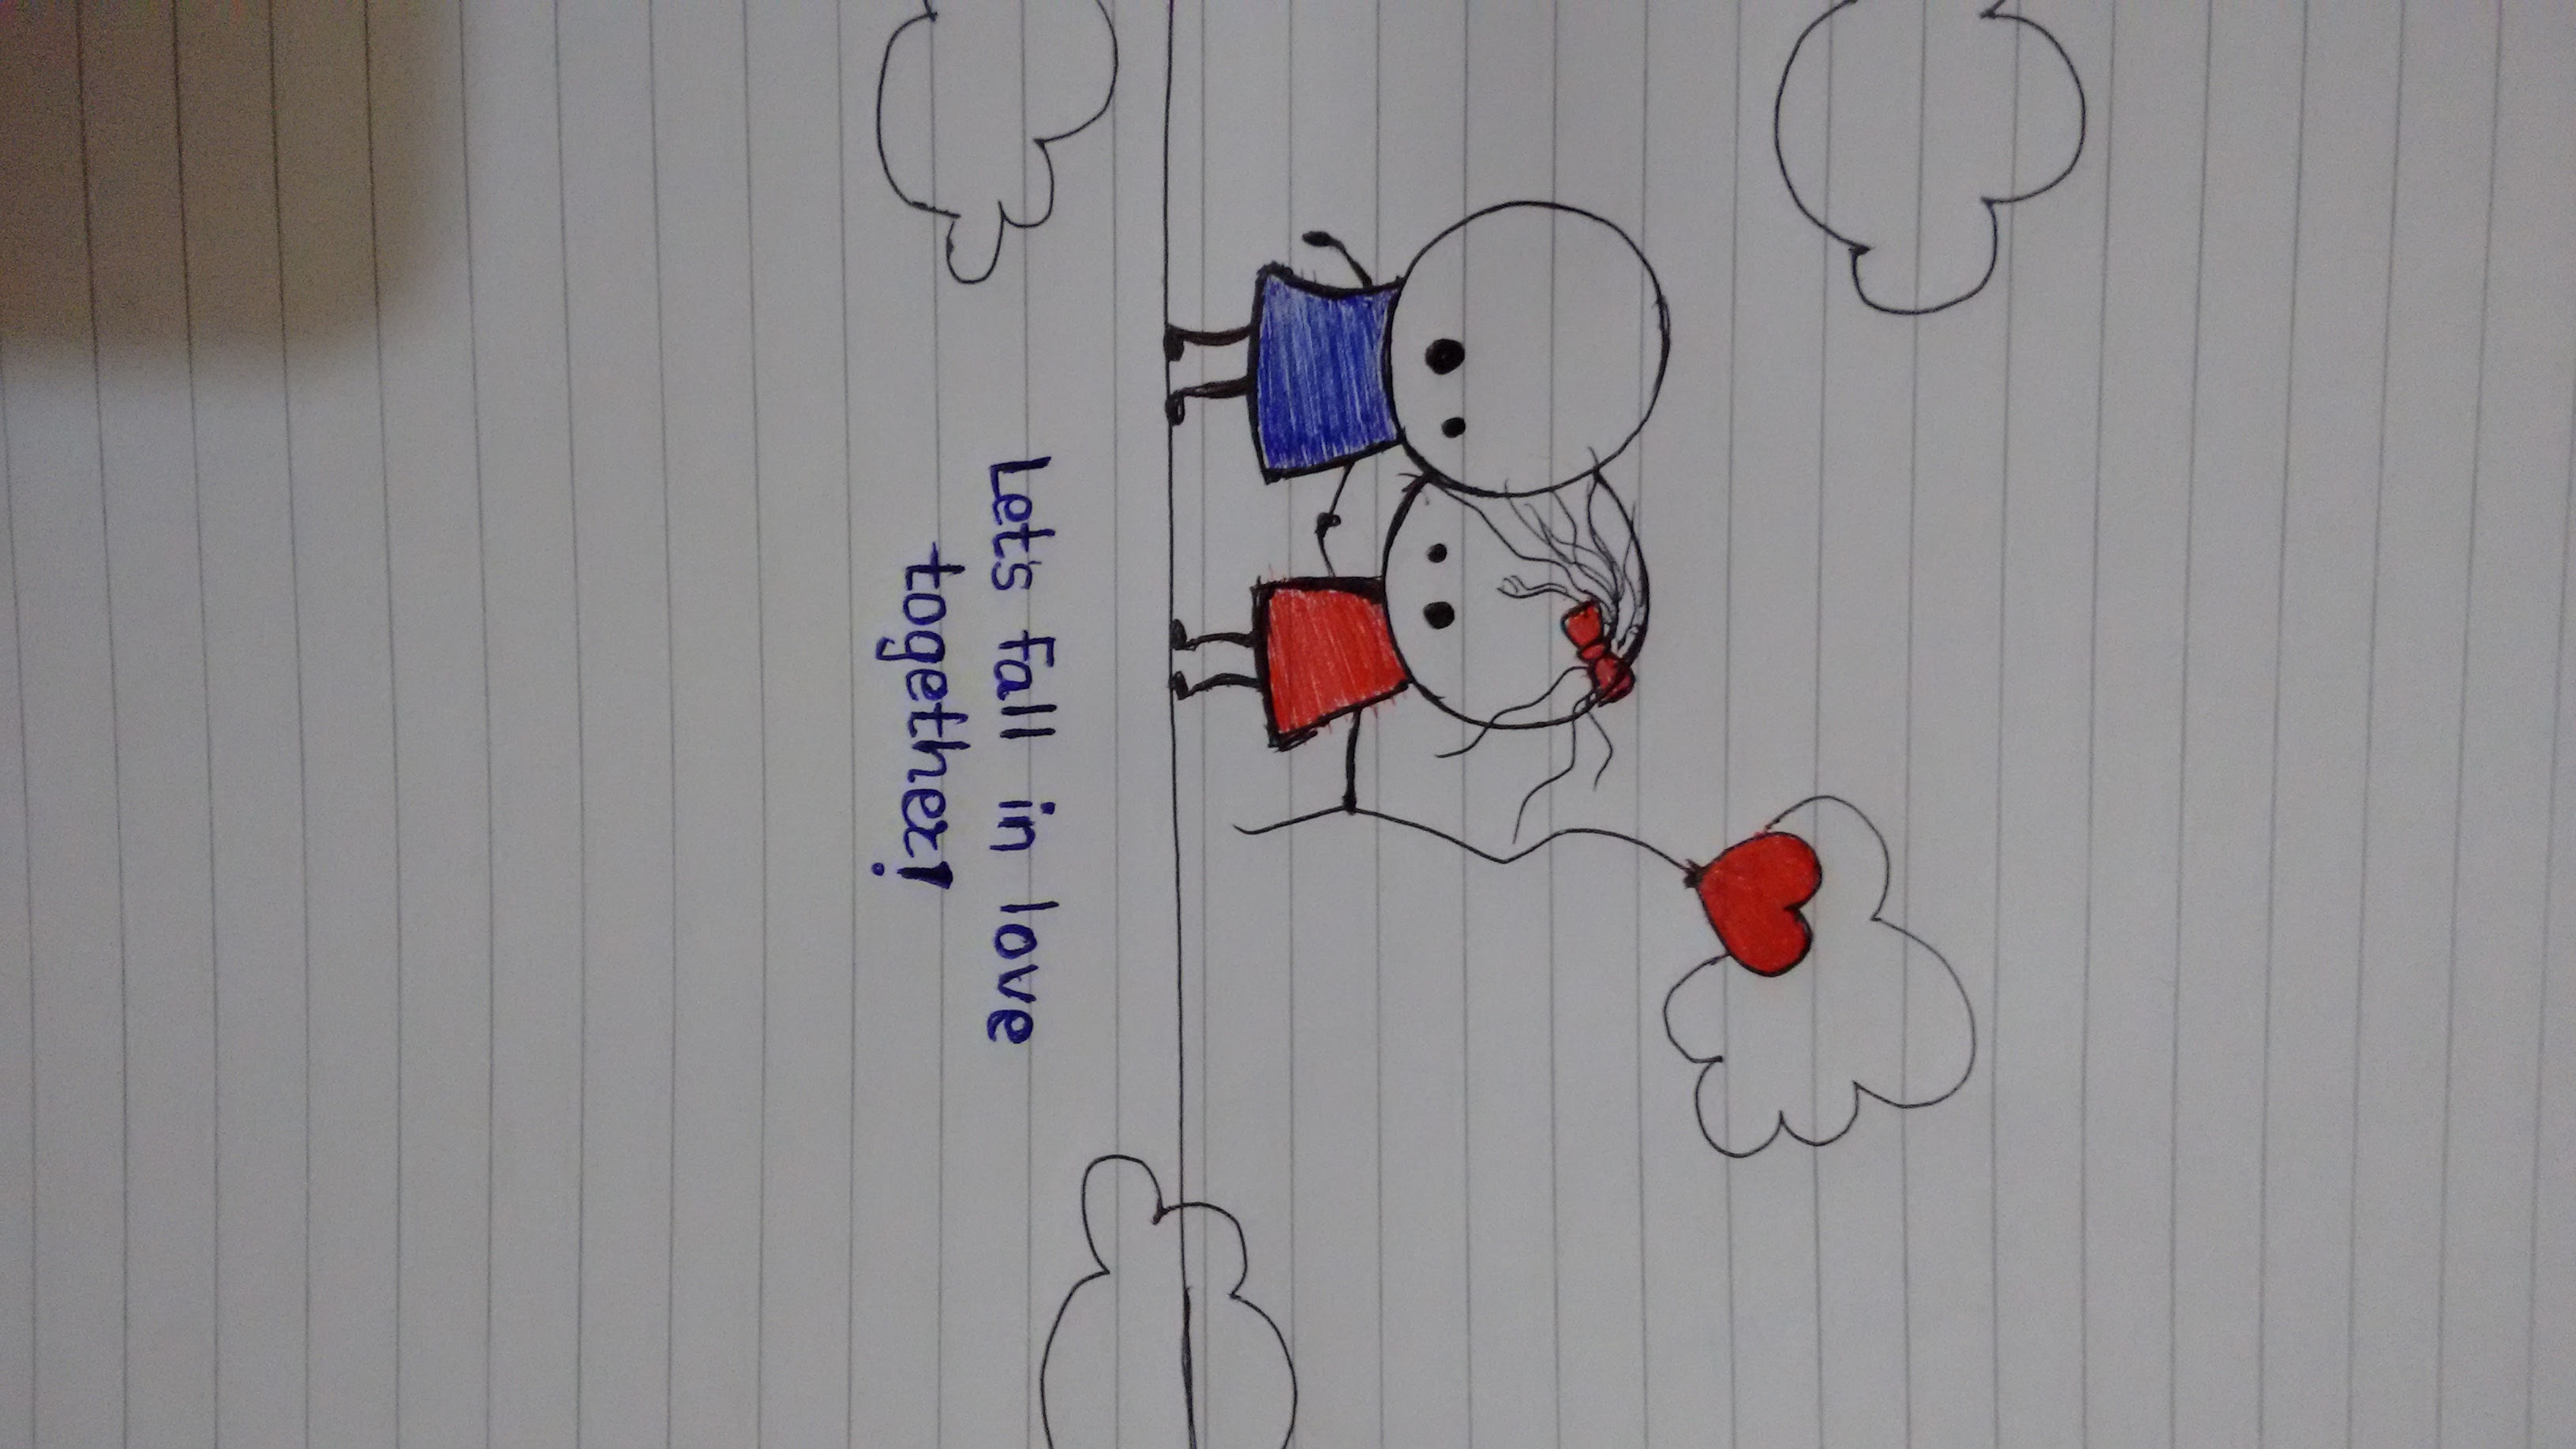 Let's fall in love
together!